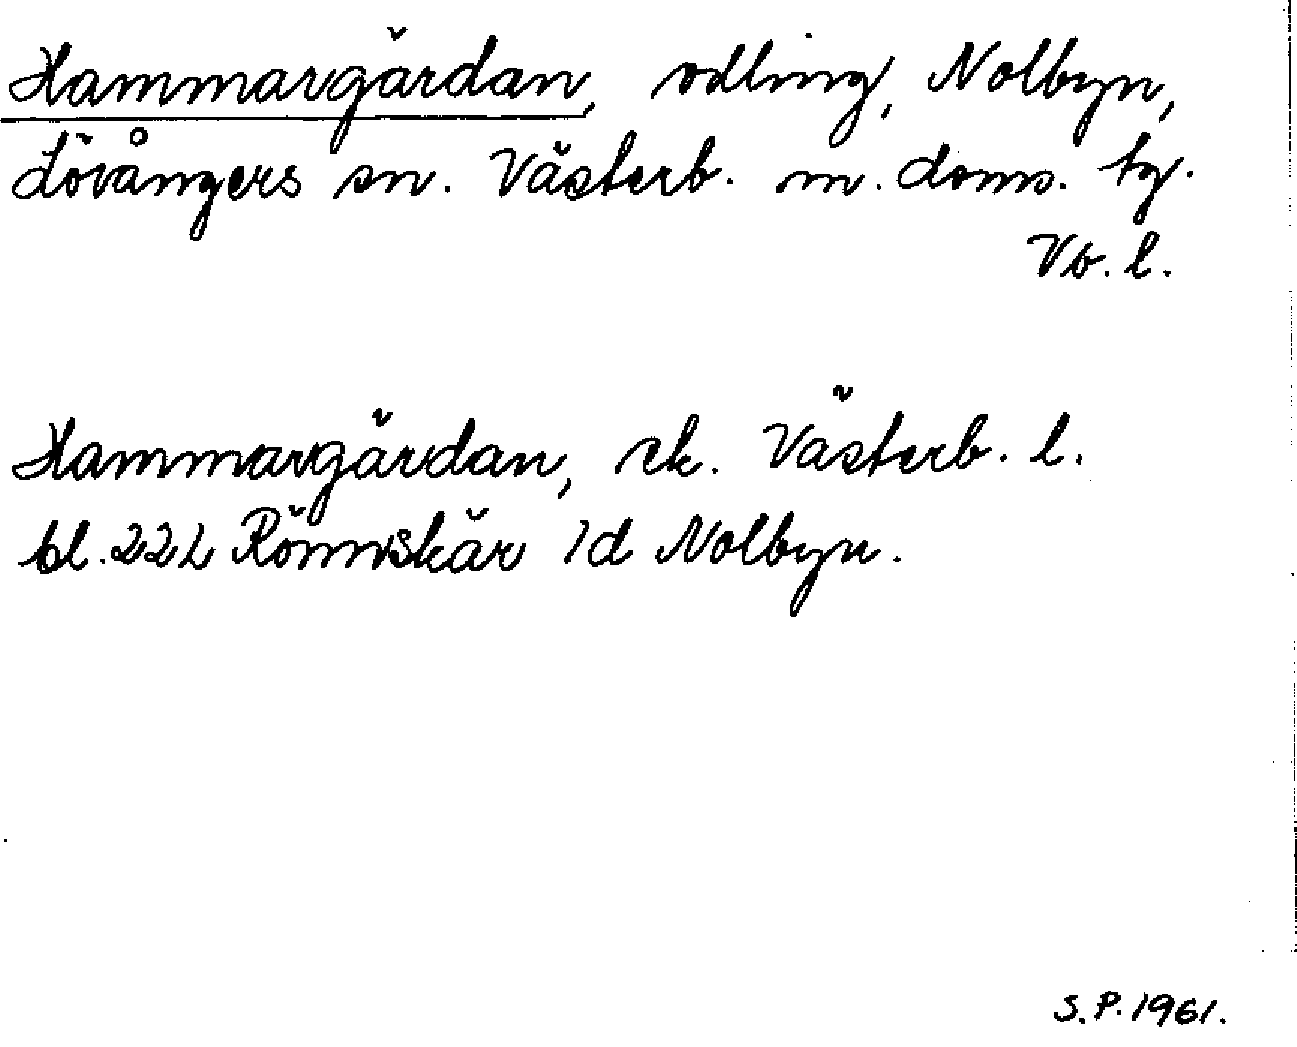 Hammargärdan, odling, Nolbyn,
Lövångers sn. Västerb. m. doms. tg.
Vb. l.
Hammargärdan, ek. Västerb. l.
bl. 22L Rönnskär 1d Nolbyn.
S.P. 1961.